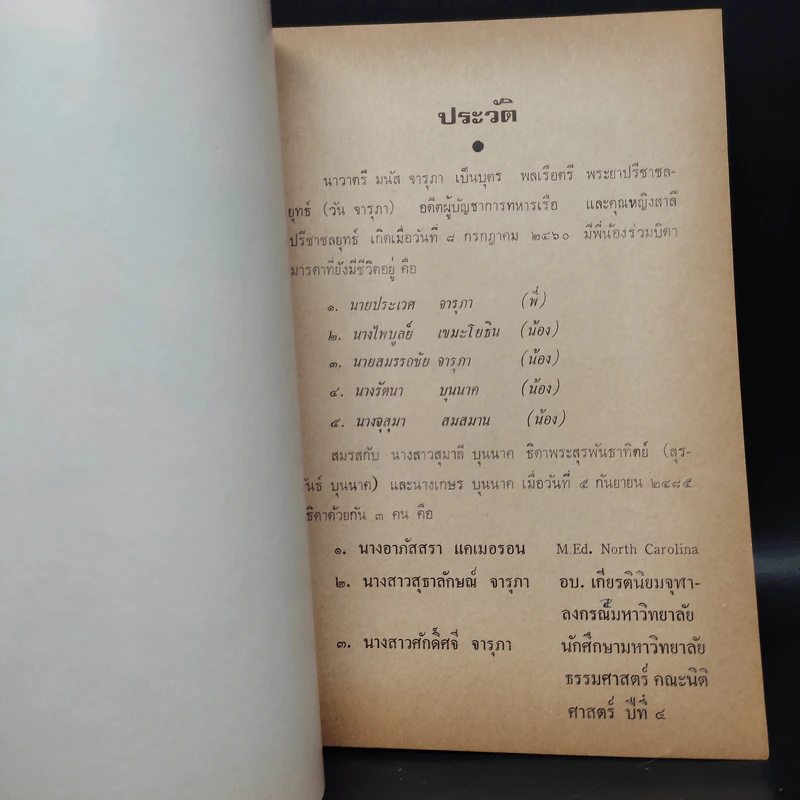 ประวัติ
นาวาตรี มนัส จารุภา เป็นบุตร พลเรือตรี พระยาปรีชาชล-
ยุทธ์ (วัน จารุภา) อดีตผู้บัญชาการทหารเรือ และคุณหญิงสาลี่
ปรีชาชลยุทธ์ เกิดเมื่อวันที่ ๘ กรกฎาคม ๒๔๖๐ มีพี่น้องร่วมบิดา
มารดาที่ยังมีชีวิตอยู่ คือ
๑. นายประเวศ จารุภา (พี่)
๒. นางไพบูลย์ เขมะโยธิน (น้อง)
๓. นายสมรรถชัย จารุภา (น้อง)
๔. นางรัตนา บุนนาค (น้อง)
๕. นางจุสุมา สมสมาน (น้อง)
สมรสกับ นางสาวสุมาลี บุนนาค ธิดาพระสุรพันธาทิตย์ (สุร-
พันธ์ บุนนาค) และนางเกษร บุนนาค เมื่อวันที่ ๕ กันยายน ๒๔๘๕
ธิดาด้วยกัน ๓ คน คือ
๑. นางอาภัสสรา แคเมอรอน M.Ed. North Carolina
๒. นางสาวสุธาลักษณ์ จารุภา อบ. เกียรตินิยมจุฬา-
ลงกรณ์มหาวิทยาลัย
๓. นางสาวศักดิ์ศจี จารุภา นักศึกษามหาวิทยาลัย
ธรรมศาสตร์ คณะนิติ
ศาสตร์ ปีที่ ๔